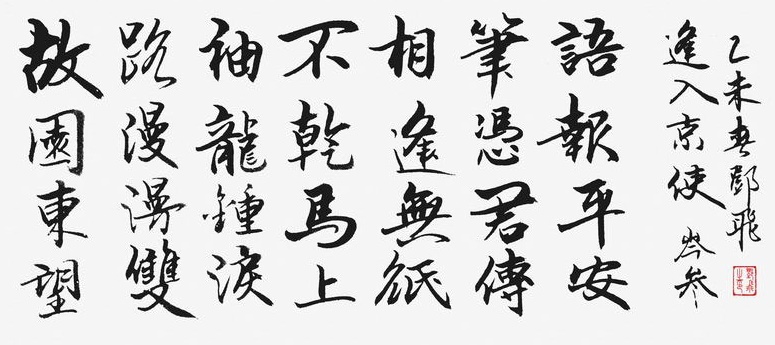 故園東望
路漫漫雙
袖龍鍾淚
不乾馬上
相逢無紙
筆憑君傳
語報平安
逢入京使 岑參
乙未春鄧飛